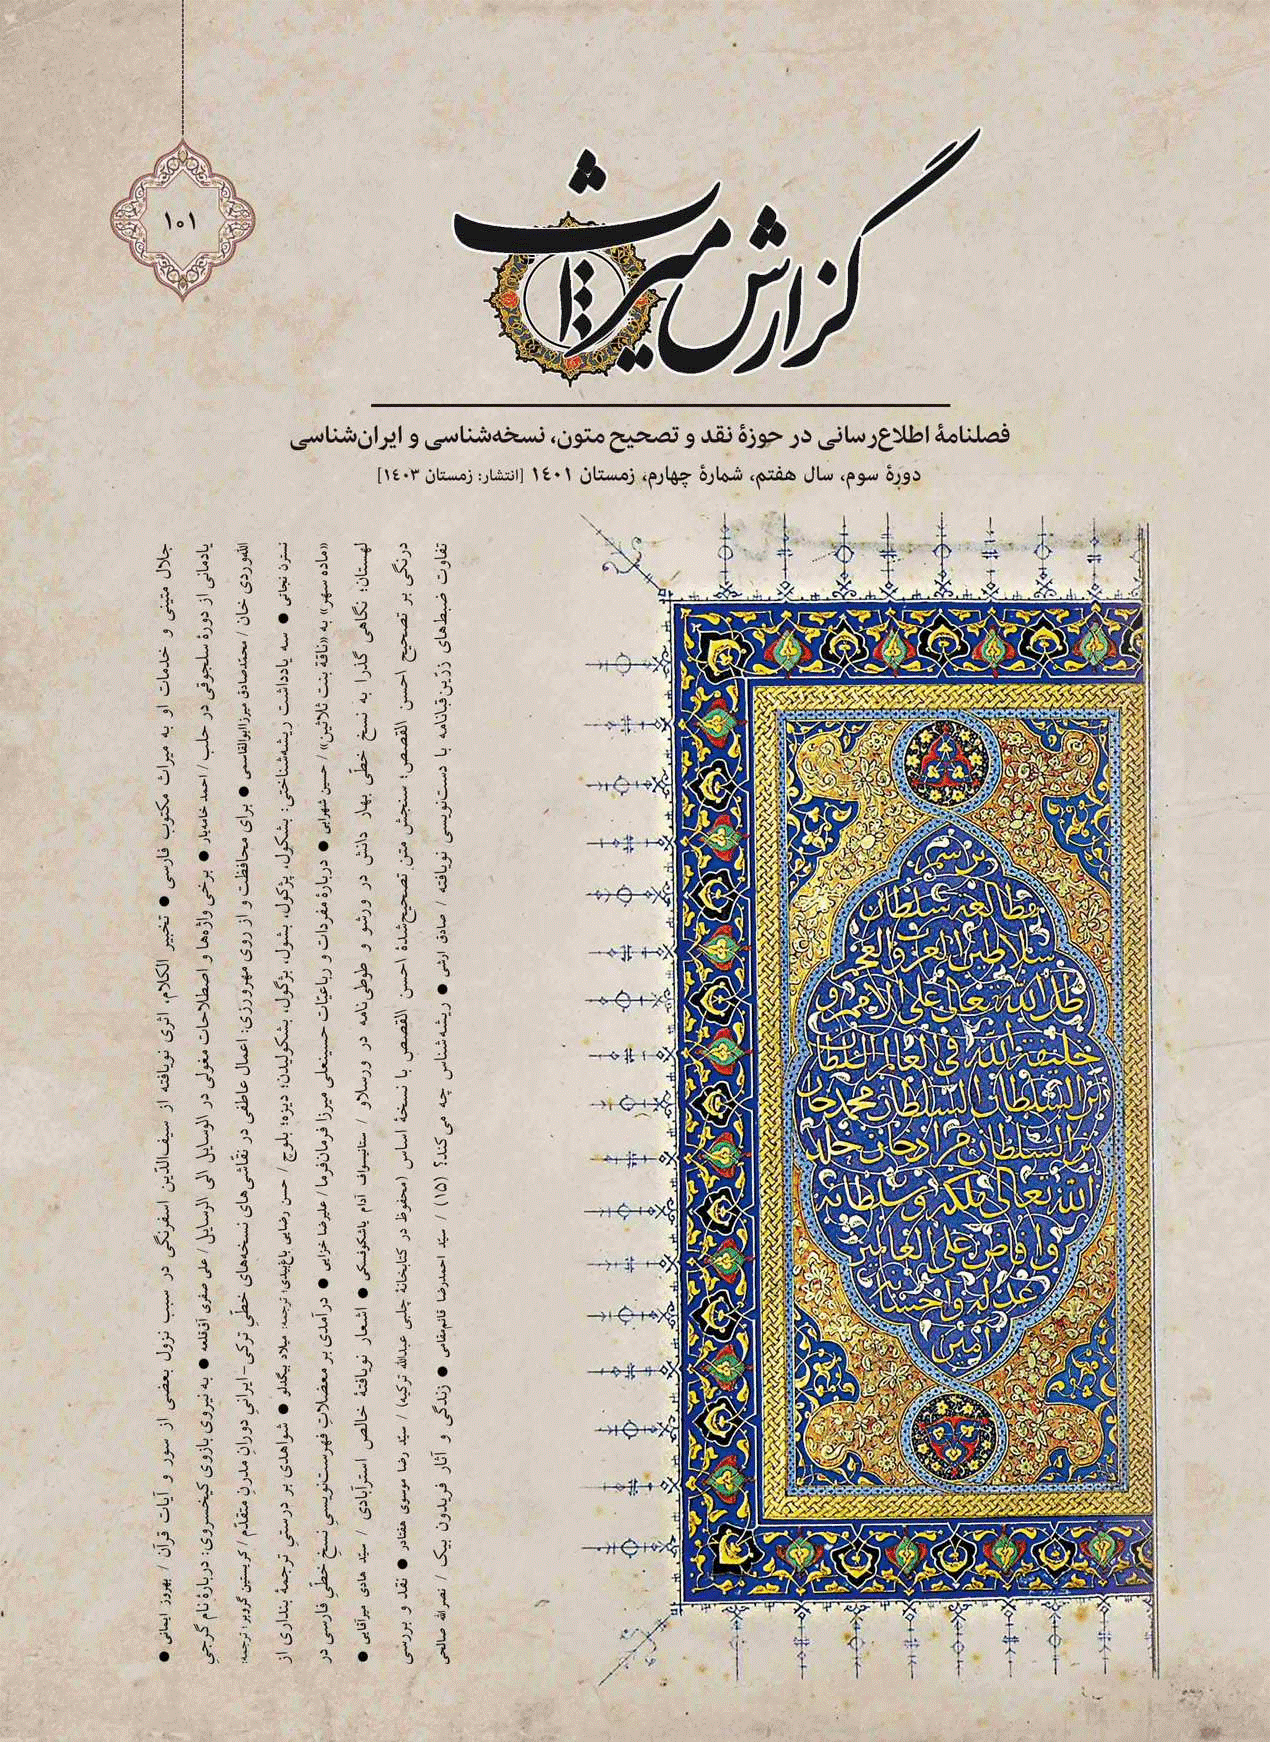 ۱۰۱
گزارش میراث
فصلنامهٔ اطلاع‌رسانی در حوزهٔ نقد و تصحیح متون، نسخه‌شناسی و ایران‌شناسی
دورهٔ سوم، سال هفتم، شمارهٔ چهارم، زمستان ۱۴۰۱ [انتشار: زمستان ۱۴۰۳]
جلال متینی و خدمات او به میراث مکتوب فارسی ● تخبیر الکلام، اثری نویافته از سیف‌الدّین اسفرنگی در سبب نزول بعضی از سور و آیات قرآن / بهروز ایمانی ●
یادمانی از دورهٔ سلجوقی در حلب / احمد خامه‌یار ● برخی واژه‌ها و اصطلاحات مغولی در الوسایل الی الرسایل / علی صفری آق‌قلعه ● به نیروی بازوی کیخسروی: دربارهٔ نام گرجیِ
الله‌وردی خان / محمّدصادق میرزاابوالقاسمی ● برای محافظت و از روی مهرورزی: اعمال عاطفی در نقّاشی‌های نسخه‌های خطّیِ ترکی-ایرانیِ دورانِ مدرنِ متقدّم / کریستین گروبر؛ ترجمه:
نسترن نجاتی ● سه یادداشت ریشه‌شناختی: بشکول، پژکول، بشول، بژکول، بشکولیدن؛ دیزه؛ بلرج / حسن رضایی باغ‌بیدی؛ ترجمه: میلاد بیگدلو ● شواهدی بر درستیِ ترجمهٔ بنداری از
«ماده سهر» به «ناقة بنت ثلاثین» / حسین شهرابی ● دربارهٔ مفردات و رباعیّات حسینعلی میرزا فرمان‌فرما / علیرضا خزایی ● درآمدی بر معضلاتِ فهرست‌نویسیِ نسخِ خطّیِ فارسی در
لهستان: نگاهی گذرا به نسخ خطّی بهار دانش در ورشو و طوطی‌نامه در ورسلاو / ستانیسواف آدام یاشکوفسکی ● اشعار نویافتهٔ خالص استرآبادی / سیّد هادی میرآقایی ●
درنگی بر تصحیح احسن القصص؛ سنجش متنِ تصحیح‌شدهٔ احسن القصص با نسخهٔ اساس (محفوظ در کتابخانهٔ چلبی عبدالله ترکیه) / سیّد رضا موسوی هفتادر ● نقد و بررسی
تفاوت ضبط‌های زرّین‌قبانامه با دست‌نویسی نویافته / صادق ارشی ● ریشه‌شناس چه می‌کند؟ (۱۵) / سیّد احمدرضا قائم‌مقامی ● زندگی و آثار فریدون بیک / نصرالله صالحی
بر اسم
مطالعه سلطان
سلاطین العرب و العجم
ظل الله تعالی علی الامم و
خلیفة الله فی العالم السلطان
بن السلطان السلطان محمد خان
بن السلطان مراد خان خلد
الله تعالی ملکه و سلطانه
و افاض علی العالمین
عدله و احسانه
امین